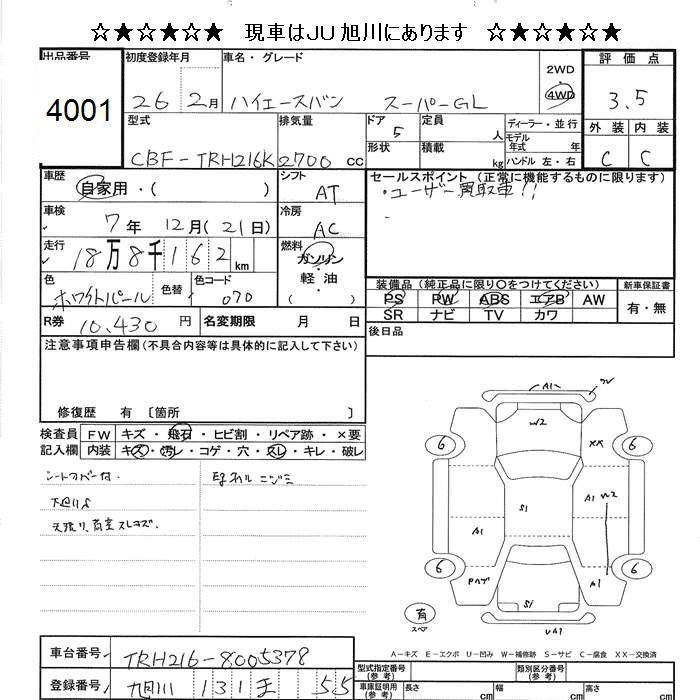 ☆★☆★☆★ 現車はJU旭川にあります ☆★☆★☆★
出品番号 初度登録年月 車名・グレード 2WD 評価点
4001 26 2月 ハイエースバン スーパーGL 4WD 3.5
型式 排気量 ドア 定員 人 ディーラー・並行 外装 内装
CBF-TRH216K 2700 cc 5 形状 積載 kg モデル年式 年 ハンドル 左・右 C C
車歴 自家用・( ) シフト AT セールスポイント (正常に機能するものに限ります)
・ユーザー買取車!!
車検 7年 12月(21日) 冷房 AC
走行 18万8千162km 燃料 ガソリン・軽油 ( )
色 ホワイトパール 色替 色コード 070
装備品 (純正品に限り○をつけてください) 新車保証書
PS PW ABS エアB AW 有・無
SR ナビ TV カワ
R券 10,430 円 名変期限 月 日 後日品
注意事項申告欄(不具合内容等は具体的に記入して下さい)
修復歴 有 〔箇所 〕
検査員 FW キズ・飛石・ヒビ割・リペア跡・×要
記入欄 内装 キズ・汚レ・コゲ・穴・スレ・キレ・破レ
シートカバー付.
下廻りS
天張り、荷室スレキズ.
A1
W2
XX
6
6
S1
A1 W2
A1
6
6
Pハゲ
A1
S1
UA1
有
スペア
A-キズ E-エクボ U-凹み W-補修跡 S-サビ C-腐食 XX-交換済
車台番号 TRH216-8005378
登録番号 旭川 131 55
型式指定番号 (参考) 類別区分番号 (参考)
車庫証明用 (参考) 長さ cm 幅 cm 高さ cm